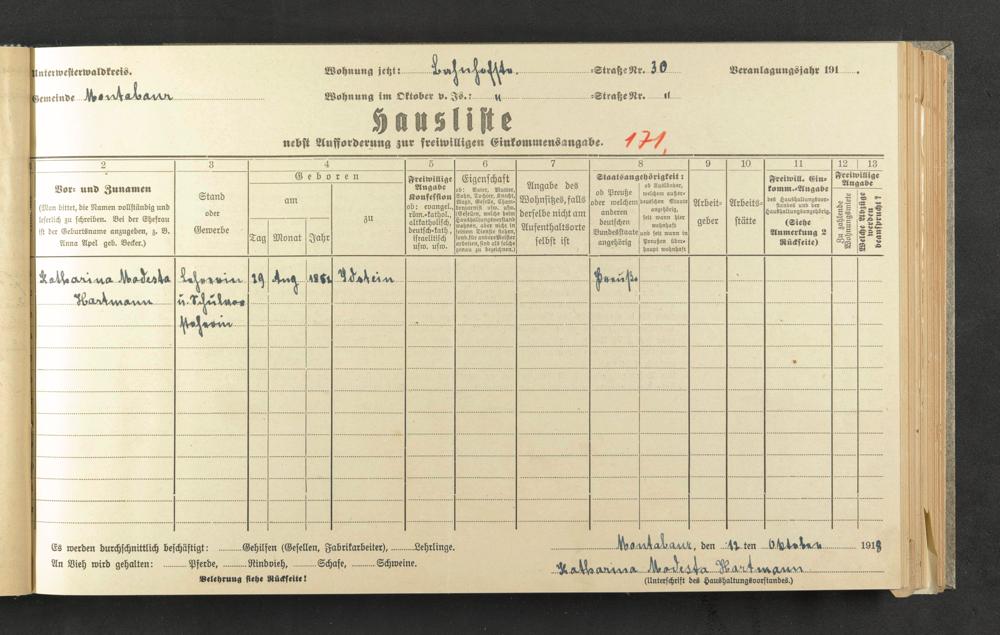 Unterwesterwaldkreis.
Wohnung jetzt: Bahnhofstr. =Straße Nr. 30
Veranlagungsjahr 191 .
Gemeinde Montabaur
Wohnung im Oktober v. Js.: " =Straße Nr. "
Hausliste
nebst Aufforderung zur freiwilligen Einkommensangabe. 171.
2 3 4 5 6 7 8 9 10 11 12 13
Vor- und Zunamen
(Man bittet, die Namen vollständig und
leserlich zu schreiben. Bei der Ehefrau
ist der Geburtsname anzugeben, z. B.
Anna Apel geb. Becker.)
Stand
oder
Gewerbe
Geboren
am
zu
Tag Monat Jahr
Freiwillige
Angabe
Konfession
ob: evangel.,
röm.-kathol.,
altkatholisch,
deutsch-kath.,
israelitisch
usw.
Eigenschaft
ob: Vater, Mutter,
Sohn, Tochter, Knecht,
Magd, Geselle,
Angabe des
Wohnsitzes, falls
derselbe nicht am
Aufenthaltsorte
selbst ist
Staatsangehörigkeit:
ob Preuße
oder welchem
anderen
deutschen
Bundesstaate
angehörig
ob Ausländer,
welchem außer-
deutschen Staate
angehörig,
seit wann hier
wohnhaft
und seit wann in
Preußen über-
haupt wohnhaft
Arbeit-
geber
Arbeits-
stätte
Freiwill. Ein-
komm.-Angabe
des Haushaltungsvor-
standes und der
Haushaltungsangehörig.
(Siehe
Anmerkung 2
Rückseite)
Freiwillige
Angabe
Zu zahlende
Wohnungsmiete
Welche Abzüge
werden
beansprucht?
Katharina Modesta Lehrerin 29 Aug 186 Idstein Preuß.
Hartmann u. Schulvor
steherin
Es werden durchschnittlich beschäftigt: Gehilfen (Gesellen, Fabrikarbeiter), Lehrlinge.
An Vieh wird gehalten: Pferde, Rindvieh, Schafe, Schweine.
Belehrung siehe Rückseite!
Montabaur, den 12 ten Oktober 1918
Katharina Modesta Hartmann
(Unterschrift des Haushaltungsvorstandes.)